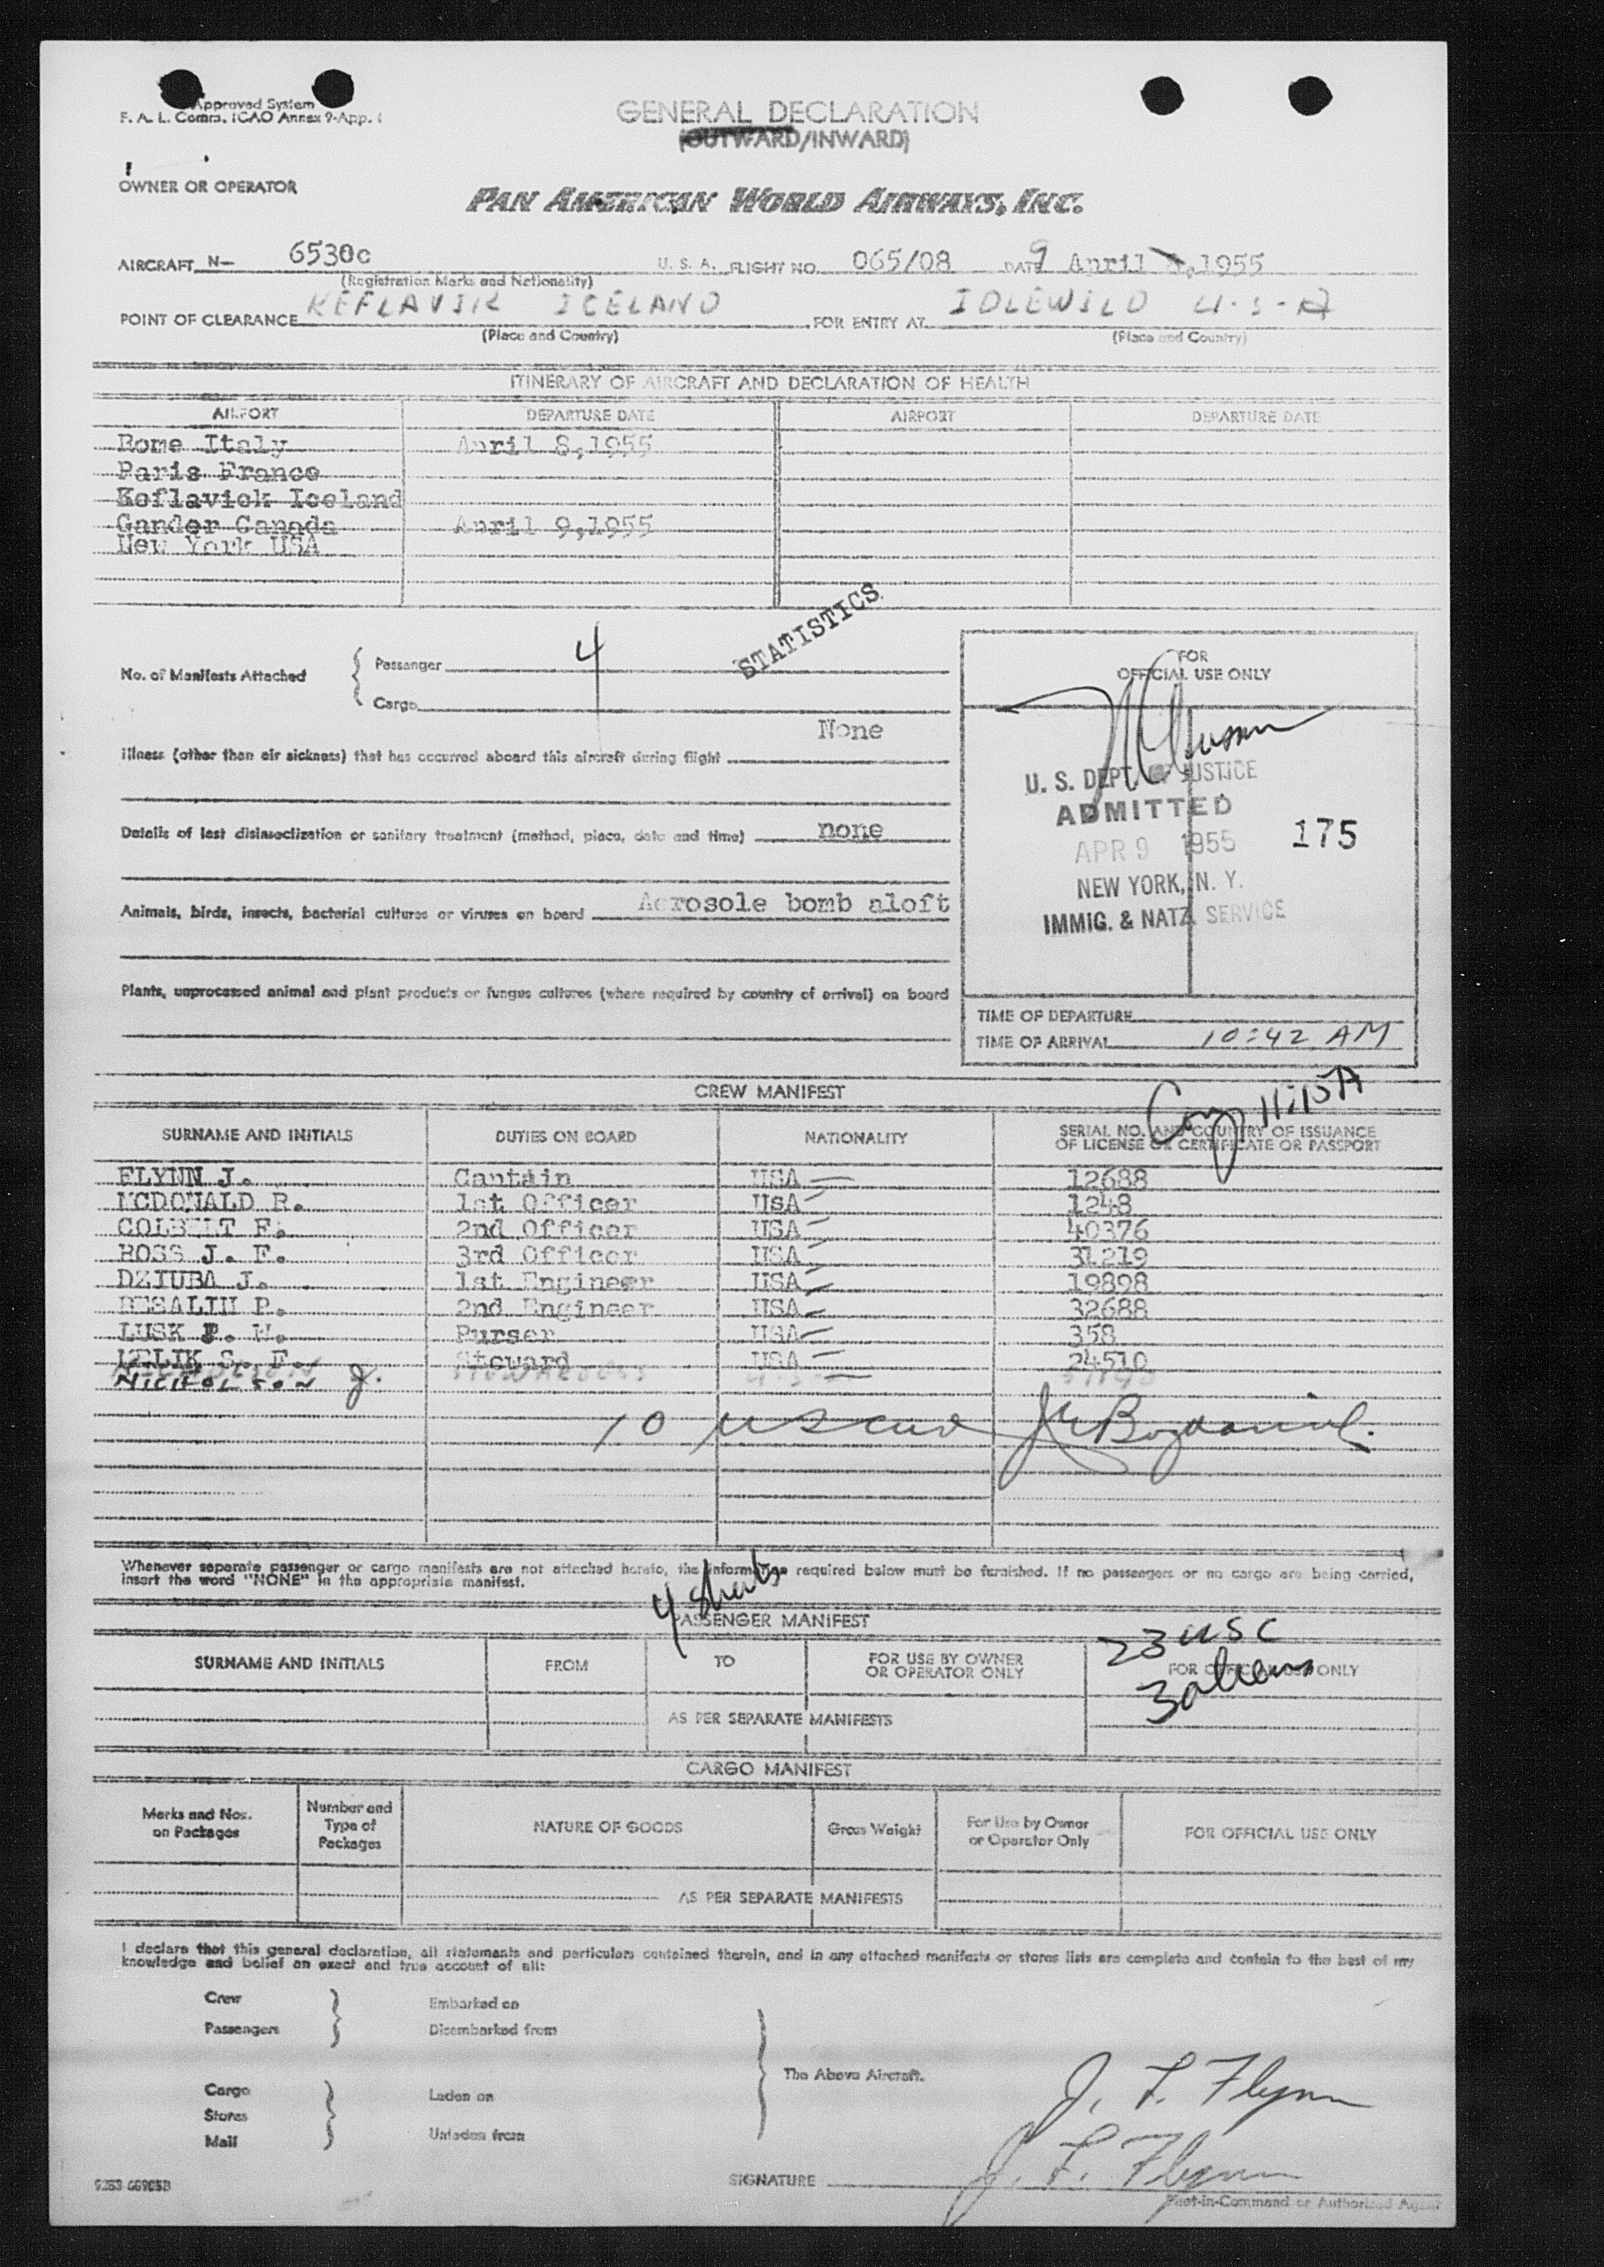 Approved System
F. A. L. Comm. ICAO Annex 9-App. 1
GENERAL DECLARATION
(OUTWARD/INWARD)
OWNER OR OPERATOR
PAN AMERICAN WORLD AIRWAYS, INC.
AIRCRAFT N- 6530c U. S. A. FLIGHT NO. 065/08 DATE 9 April ,1955
(Registration Marks and Nationality)
POINT OF CLEARANCE KEFLAVIK ICELAND FOR ENTRY AT IDLEWILD U-S-A
(Place and Country) (Place and Country)
ITINERARY OF AIRCRAFT AND DECLARATION OF HEALTH
AIRPORT DEPARTURE DATE AIRPORT DEPARTURE DATE
Rome Italy April 8,1955
Paris France
Keflavick Iceland
Gander Canada April 9,1955
New York USA
STATISTICS
No. of Manifests Attached { Passenger 4
Cargo
FOR
OFFICIAL USE ONLY
None
Illness (other than air sickness) that has occurred aboard this aircraft during flight
U. S. DEPT. OF JUSTICE
ADMITTED
APR 9 1955 175
NEW YORK, N. Y.
IMMIG. & NATZ. SERVICE
Details of last disinsectization or sanitary treatment (method, place, date and time) none
Animals, birds, insects, bacterial cultures or viruses on board Aerosole bomb aloft
Plants, unprocessed animal and plant products or fungus cultures (where required by country of arrival) on board
TIME OF DEPARTURE
TIME OF ARRIVAL 10:42 AM
CREW MANIFEST
11:15A
SURNAME AND INITIALS DUTIES ON BOARD NATIONALITY SERIAL NO. AND COUNTRY OF ISSUANCE
OF LICENSE OR CERTIFICATE OR PASSPORT
FLYNN J. Captain USA 12688
MCDONALD R. 1st Officer USA 1248
2nd Officer USA 40376
ROSS J. F. 3rd Officer USA 31219
DZIUBA J. 1st Engineer USA 19898
2nd Engineer USA 32688
LUSK P. W. Purser USA 358
Steward USA 24510
NICHOLSON J.
10
Whenever separate passenger or cargo manifests are not attached hereto, the information required below must be furnished. If no passengers or no cargo are being carried,
insert the word "NONE" in the appropriate manifest.
4 sheets
PASSENGER MANIFEST
23 USC
3 aliens
SURNAME AND INITIALS FROM TO FOR USE BY OWNER
OR OPERATOR ONLY FOR OFFICIAL USE ONLY
AS PER SEPARATE MANIFESTS
CARGO MANIFEST
Marks and Nos.
on Packages Number and
Type of
Packages NATURE OF GOODS Gross Weight For Use by Owner
or Operator Only FOR OFFICIAL USE ONLY
AS PER SEPARATE MANIFESTS
I declare that this general declaration, all statements and particulars contained therein, and in any attached manifests or stores lists are complete and contain to the best of my
knowledge and belief an exact and true account of all:
Crew
Passengers
Embarked on
Disembarked from
The Above Aircraft.
Cargo
Stores
Mail
Laden on
Unladen from
J. F. Flynn
J. F. Flynn
SIGNATURE
Pilot-in-Command or Authorized Agent